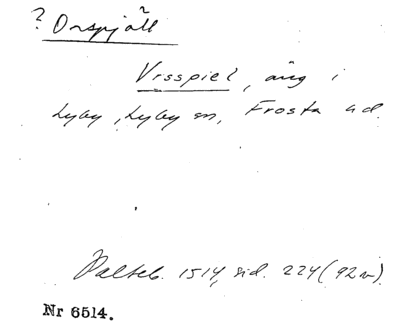 ? Orspjäll
Vrsspiel, äng i
Lyby, Lyby sn, Frosta hd.
Palteb. 1514, sid. 224 (92 v).
Nr 6514.